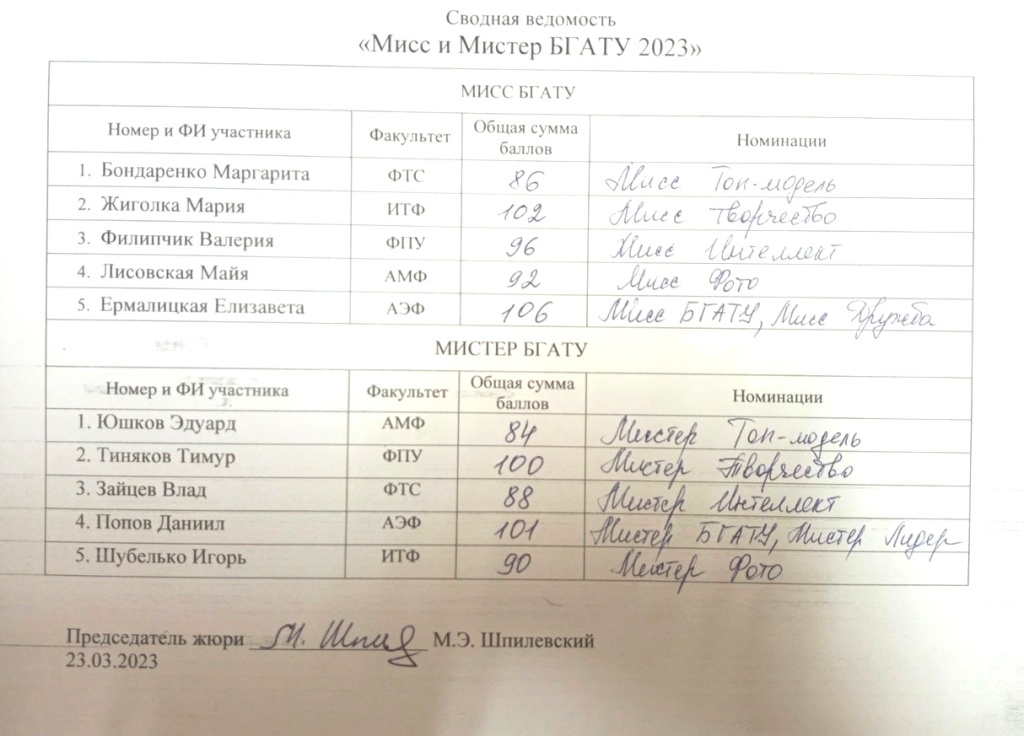 Сводная ведомость
«Мисс и Мистер БГАТУ 2023»
МИСС БГАТУ
Номер и ФИ участника Факультет Общая сумма баллов Номинации
1. Бондаренко Маргарита ФТС 86 Мисс Топ-модель
2. Жиголка Мария ИТФ 102 Мисс Творчество
3. Филипчик Валерия ФПУ 96 Мисс Интеллект
4. Лисовская Майя АМФ 92 Мисс Фото
5. Ермалицкая Елизавета АЭФ 106 Мисс БГАТУ, Мисс Дружба
МИСТЕР БГАТУ
Номер и ФИ участника Факультет Общая сумма баллов Номинации
1. Юшков Эдуард АМФ 84 Мистер Топ-модель
2. Тиняков Тимур ФПУ 100 Мистер Творчество
3. Зайцев Влад ФТС 88 Мистер Интеллект
4. Попов Даниил АЭФ 101 Мистер БГАТУ, Мистер Лидер
5. Шубелько Игорь ИТФ 90 Мистер Фото
Председатель жюри М. Шпил М.Э. Шпилевский
23.03.2023